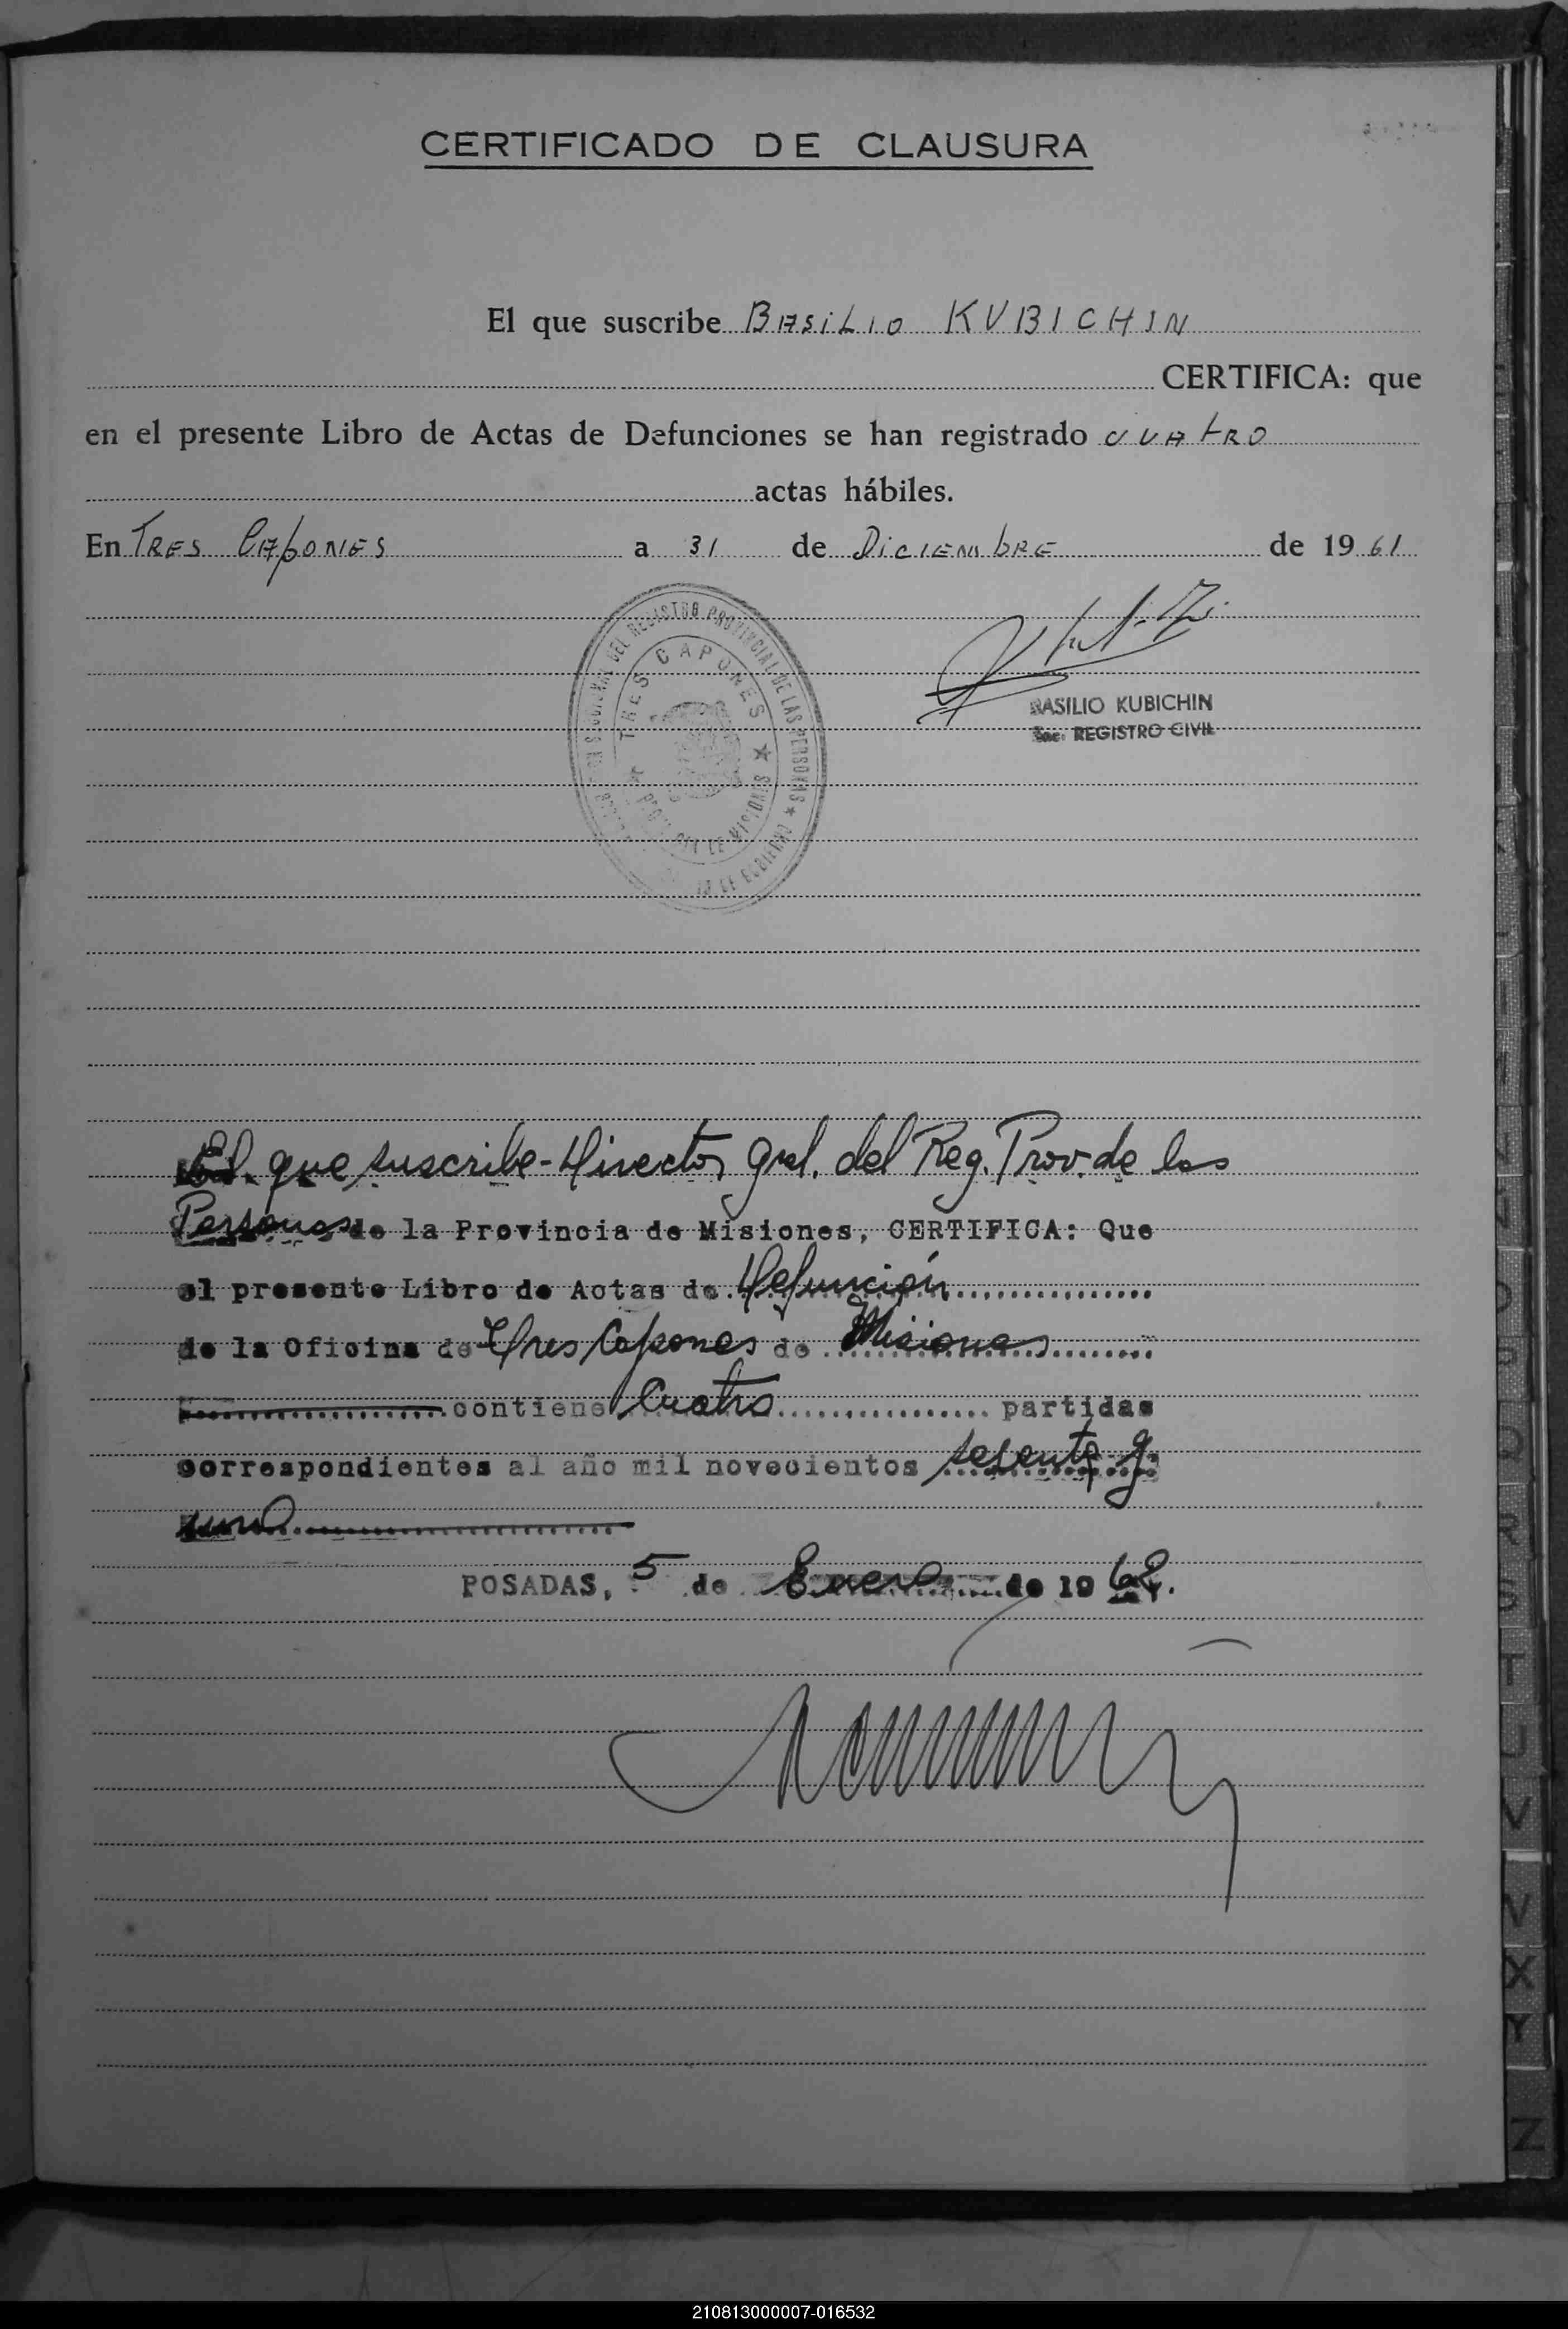 CERTIFICADO DE CLAUSURA
El que suscribe BASILIO KUBICHIN
CERTIFICA: que
en el presente Libro de Actas de Defunciones se han registrado CUATRO
actas hábiles.
En TRES CAPONES a 31 de DICIEMBRE de 1961
TRES CAPONES
DEL REGISTRO PROVINCIAL DE LAS PERSONAS
BASILIO KUBICHIN
Sec. REGISTRO CIVIL
El que suscribe - Director Gral. del Reg. Prov. de las
Personas de la Provincia de Misiones, CERTIFICA: Que
el presente Libro de Actas de Defunción
de la Oficina de Tres Capones de Misiones
contiene Cuatro partidas
correspondientes al año mil novecientos sesenta y
uno
POSADAS, 5 de Enero de 1962.
T
U
V
X
Y
Z
210813000007-016532